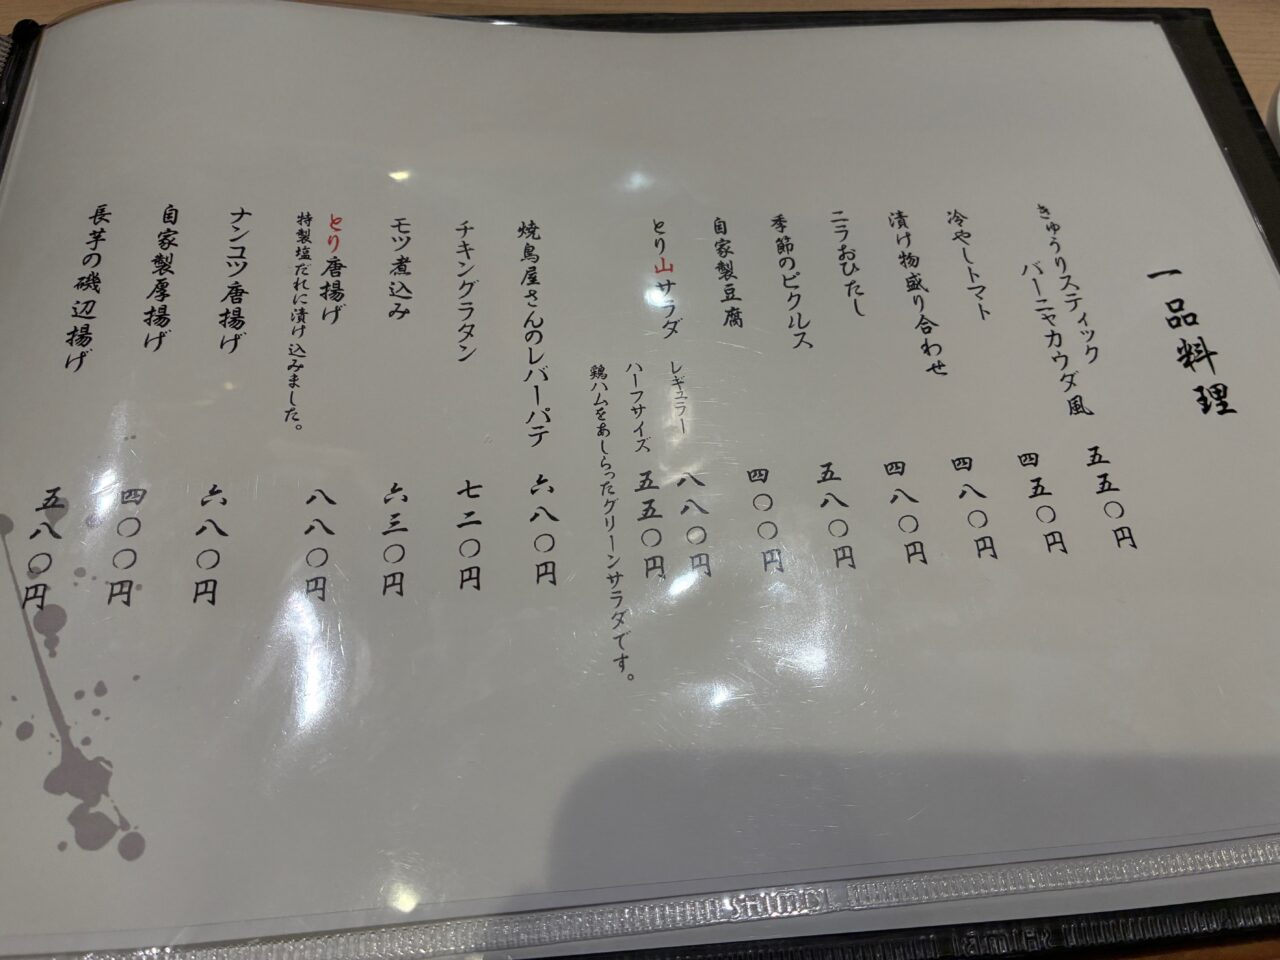 一品料理
きゅうりスティック
バーニャカウダ風 五五〇円
冷やしトマト 四五〇円
漬け物盛り合わせ 四八〇円
ニラおひたし 四八〇円
季節のピクルス 五八〇円
自家製豆腐 四〇〇円
とり山サラダ レギュラー 八八〇円
ハーフサイズ 五五〇円
鶏ハムをあしらったグリーンサラダです。
焼鳥屋さんのレバーパテ 六八〇円
チキングラタン 七二〇円
モツ煮込み 六三〇円
とり唐揚げ 八八〇円
特製塩だれに漬け込みました。
ナンコツ唐揚げ 六八〇円
自家製厚揚げ 四〇〇円
長芋の磯辺揚げ 五八〇円
SHIMBI